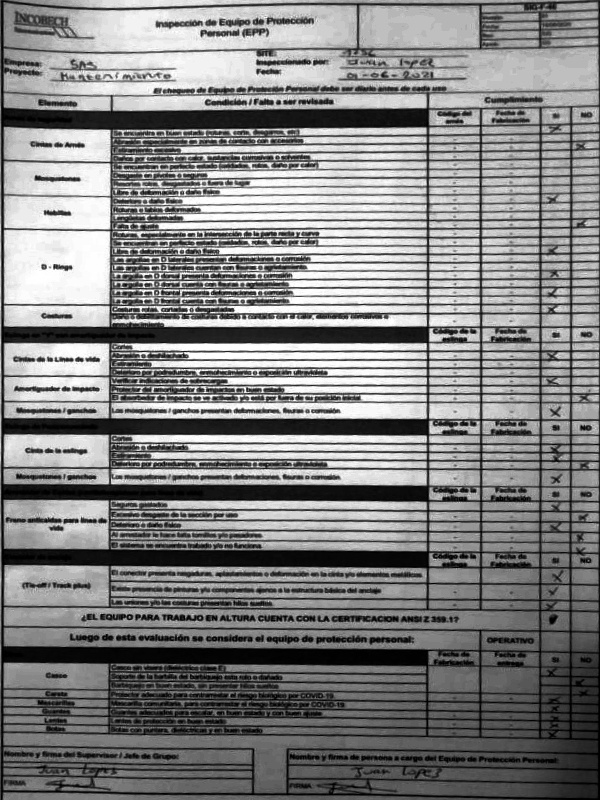 INCOBECH
Inspección de Equipo de Protección
Personal (EPP)
SIG-F-46
Empresa: SAS
SITE: 1736
Proyecto: Mantenimiento
Inspeccionado por: Juan Lopez
Fecha: 01-06-2021
El chequeo de Equipo de Protección Personal debe ser diario antes de cada uso
Elemento Condición / Falta a ser revisada Cumplimiento
Código del arnés Fecha de Fabricación SI NO
Cintas de Arnés
Se encuentra en buen estado (roturas, corte, desgarros, etc)
Abrasión especialmente en zonas de contacto con accesorios
Estiramiento excesivo
Daños por contacto con calor, sustancias corrosivas o solventes
Mosquetones
Se encuentran en perfecto estado (oxidados, rotos, daño por calor)
Desgaste en pivotes o seguros
Resortes rotos, desgastados o fuera de lugar
Libre de deformación o daño físico
Hebillas
Deterioro o daño físico
Roturas o lados deformados
Lengüetas deformadas
Falta de ajuste
D - Rings
Roturas, especialmente en la intersección de la parte recta y curve
Se encuentran en perfecto estado (oxidados, rotos, daño por calor)
Libre de deformación o daño físico
Las argollas en D laterales presentan deformaciones o corrosión
Las argollas en D laterales cuentan con fisuras o agrietamiento.
La argolla en D dorsal presenta deformaciones o corrosión
La argolla en D dorsal cuenta con fisuras o agrietamiento
La argolla en D frontal presenta deformaciones o corrosión
La argolla en D frontal cuenta con fisuras o agrietamiento
Costuras
Costuras rotas, cortadas o desgastadas
Daño o debilitamiento de costuras debido a contacto con el calor, elementos corrosivos o enmohecimiento
Código de la eslinga Fecha de Fabricación SI NO
Cintas de la Línea de vida
Cortes
Abrasión o deshilachado
Estiramiento
Deterioro por podredumbre, enmohecimiento o exposición ultravioleta
Amortiguador de impacto
Verificar indicaciones de sobrecargas
Protector del amortiguador de impactos en buen estado
El absorbedor de impacto se ve activado y/o está por fuera de su posición inicial.
Mosquetones / ganchos
Los mosquetones / ganchos presentan deformaciones, fisuras o corrosión.
Código de la eslinga Fecha de Fabricación SI NO
Cinta de la eslinga
Cortes
Abrasión o deshilachado
Estiramiento
Deterioro por podredumbre, enmohecimiento o exposición ultravioleta
Mosquetones / ganchos
Los mosquetones / ganchos presentan deformaciones, fisuras o corrosión.
Código de la eslinga Fecha de Fabricación SI NO
Freno anticaídas para línea de vida
Seguros gastados
Excesivo desgaste de la sección por uso
Deterioro o daño físico
Al arrestador le hace falta tornillos y/o pasadores.
El sistema se encuentra trabado y/o no funciona.
Código de la eslinga Fecha de Fabricación SI NO
(Tie-off / Track plus)
El conector presenta rasgaduras, aplastamientos o deformación en la cinta y/o elementos metálicos.
Existe presencia de pinturas y/o componentes ajenos a la estructura básica del anclaje
Las uniones y/o las costuras presentan hilos sueltos.
¿EL EQUIPO PARA TRABAJO EN ALTURA CUENTA CON LA CERTIFICACION ANSI Z 359.1?
Luego de esta evaluación se considera el equipo de protección personal: OPERATIVO
Fecha de Fabricación Fecha de entrega SI NO
Casco
Casco sin visera (dieléctrico clase E)
Soporte de la barbilla del barbiquejo esta roto o dañado
Barbiquejo en buen estado, sin presentar hilos sueltos
Careta Protector adecuado para contrarrestar el riesgo biológico por COVID-19
Mascarillas Mascarilla comunitaria, para contrarrestar el riesgo biológico por COVID-19
Guantes Guantes adecuados para escalar, en buen estado y con buen ajuste
Lentes Lentes de protección en buen estado
Botas Botas con puntera, dieléctricas y en buen estado
Nombre y firma del Supervisor / Jefe de Grupo:
Juan Lopez
FIRMA
Nombre y firma de persona a cargo del Equipo de Protección Personal:
Juan Lopez
FIRMA